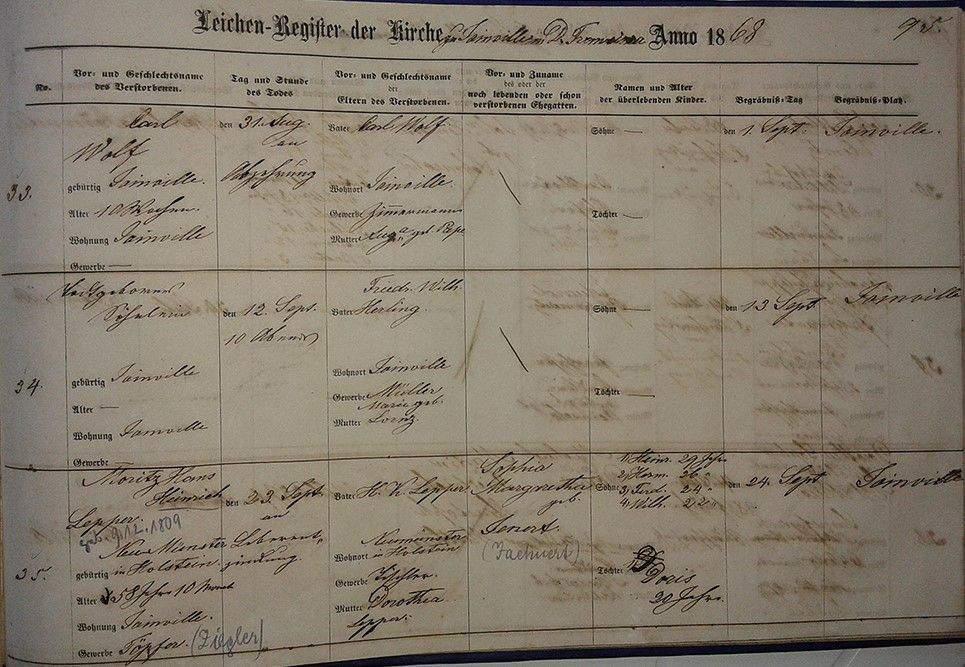 Leichen-Register der Kirche zu Joinville, D. Francisca Anno 1868
95.
No.
Vor- und Geschlechtsname
des Verstorbenen.
Tag und Stunde
des Todes
Vor- und Geschlechtsname
der
Eltern des Verstorbenen.
Vor- und Zuname
des oder der
noch lebenden oder schon
verstorbenen Ehegatten.
Namen und Alter
der überlebenden Kinder.
Begräbniß-Tag
Begräbniß-Platz.
33.
Carl
Wolf
gebürtig Joinville.
Alter 10 Wochen.
Wohnung Joinville
Gewerbe —
den 31. Aug.
an
Abzehrung
Vater Carl Wolf.
Wohnort Joinville.
Gewerbe Zimmermann
Mutter geb.
Söhne —
Töchter —
den 1. Sept.
Joinville.
34.
Todtgebornes
Söhnlein
gebürtig Joinville
Alter —
Wohnung Joinville
Gewerbe
den 12. Sept.
10 Abends
Friedr. Wilh.
Vater Herling.
Wohnort Joinville
Gewerbe Müller
Marie geb.
Mutter Lorenz.
Söhne —
Töchter —
den 13 Sept
Joinville
35.
Moritz Hans
Heinrich
Lepper.
geb. 9.12.1809
Neu Münster
gebürtig in Holstein
Alter 58 Jhr 10 Monat
Wohnung Joinville.
Gewerbe Töpfer. (Ziegler)
den 23. Sept.
an
Leberent-
zündung
Vater H. H. Lepper
Neumünster
Wohnort in Holstein
Gewerbe Tischler.
Mutter Dorothea
Lepper.
Sophia
Margaretha
geb.
Jenert.
(Jachnert)
1, Heinr. 29 Jhr.
2, Herm. 26 "
Söhne 3, Ferd. 24 "
4, Wilh. 22 "
Töchter
Doris
20 Jahr.
den 24. Sept
Joinville